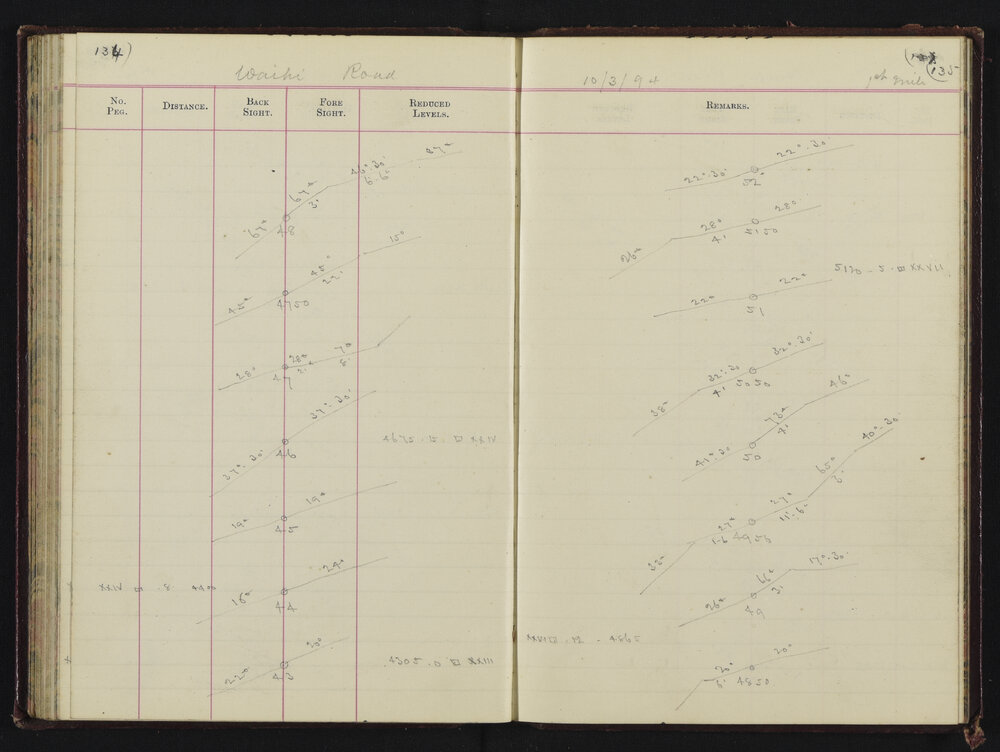 134)
Waihi Road
No. Peg. Distance. Back Sight. Fore Sight. Reduced Levels.
67° 48 67° 3' 45°.30' 6' 6" 37°
45° 4750 45° 15°
28° 47 28° 2' 7° 8'
37°.30' 46 37°.30'
4675.15. XXIV
19° 45 19°
XXIV 8. 4400
16° 44 29°
22° 43 20°
4305.0 XXIII
10/3/94
135
1st mile
Remarks.
22°.30' 52 22°.30'
26° 28° 4' 5150 28°
5170 - 5. XXVII
22° 51 22°
38° 32°.30' 4' 5050 32°.30'
41°.30' 50 73° 4' 46°
33° 27° 1-6 4955 27° 11'.6" 65° 40°.30'
26° 49 66° 3' 17°.30'
12 - 4865
20° 6' 4850 20°